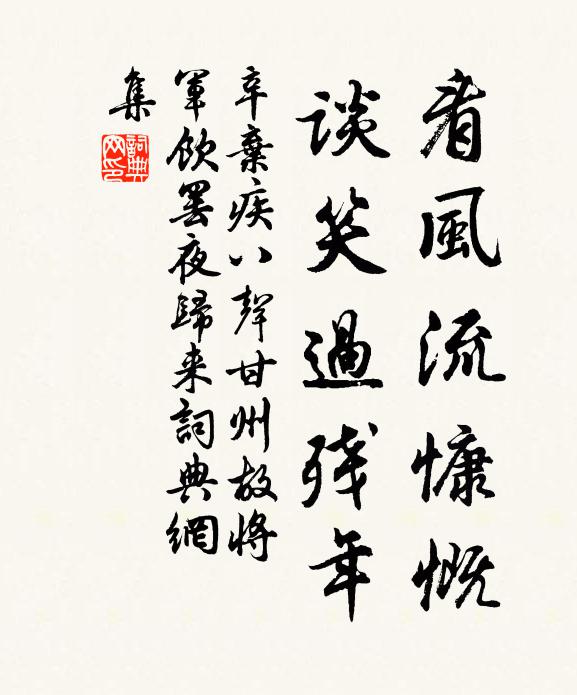 看風流慷慨
談笑過残年
辛棄疾八聲甘州故將
軍飲罷夜歸来詞典網
集
詞典网印